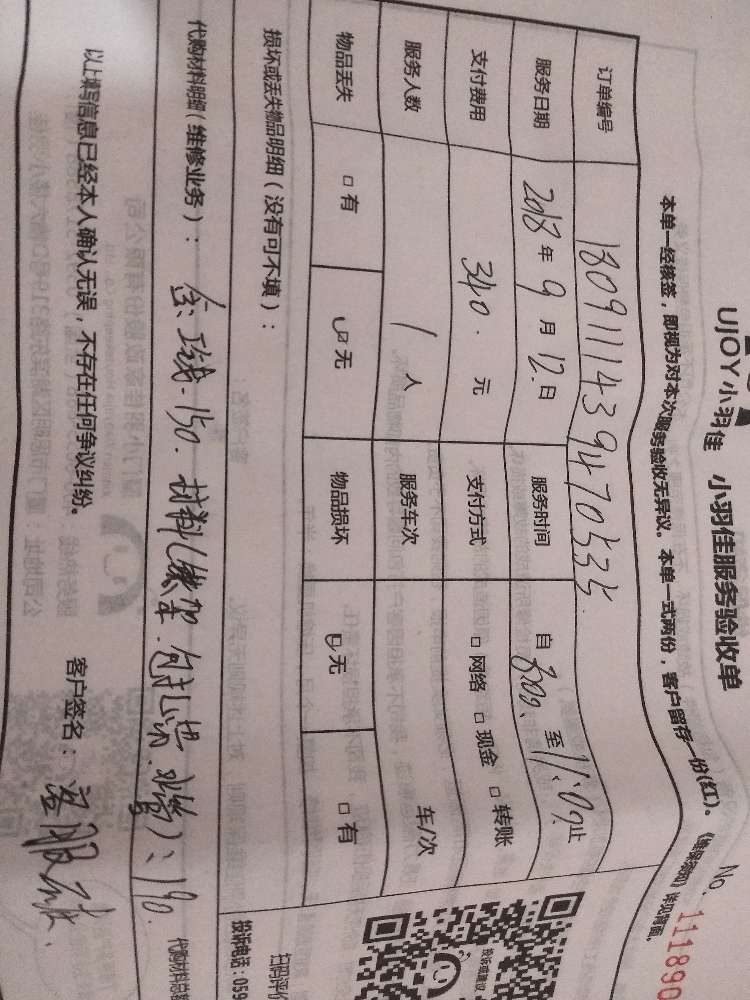 UJOY小羽佳 小羽佳服务验收单
No. 111890
本单一经核签，即视为对本次服务验收无异议。本单一式两份，客户留存一份(红)。《维保须知》详见背面。
订单编号 1809111439470535
服务日期 2018年9月12日 服务时间 自 至 11:09止
支付费用 340. 元 支付方式 □网络 □现金 □转账
服务人数 1 人 服务车次 车/次
物品丢失 □有 ☑无 物品损坏 ☑无 □有
损坏或丢失物品明细（没有可不填）：
扫码评价
投诉电话：059
代购材料明细（维修业务）： 150. 材料 190.
代购材料总额
以上填写信息已经本人确认无误，不存在任何争议纠纷。 客户签名：